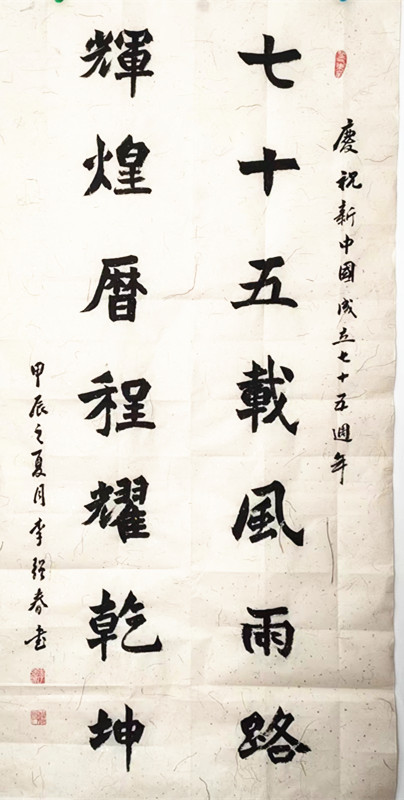 慶祝新中國成立七十五週年
七十五載風雨路
輝煌曆程耀乾坤
甲辰之夏月李春書